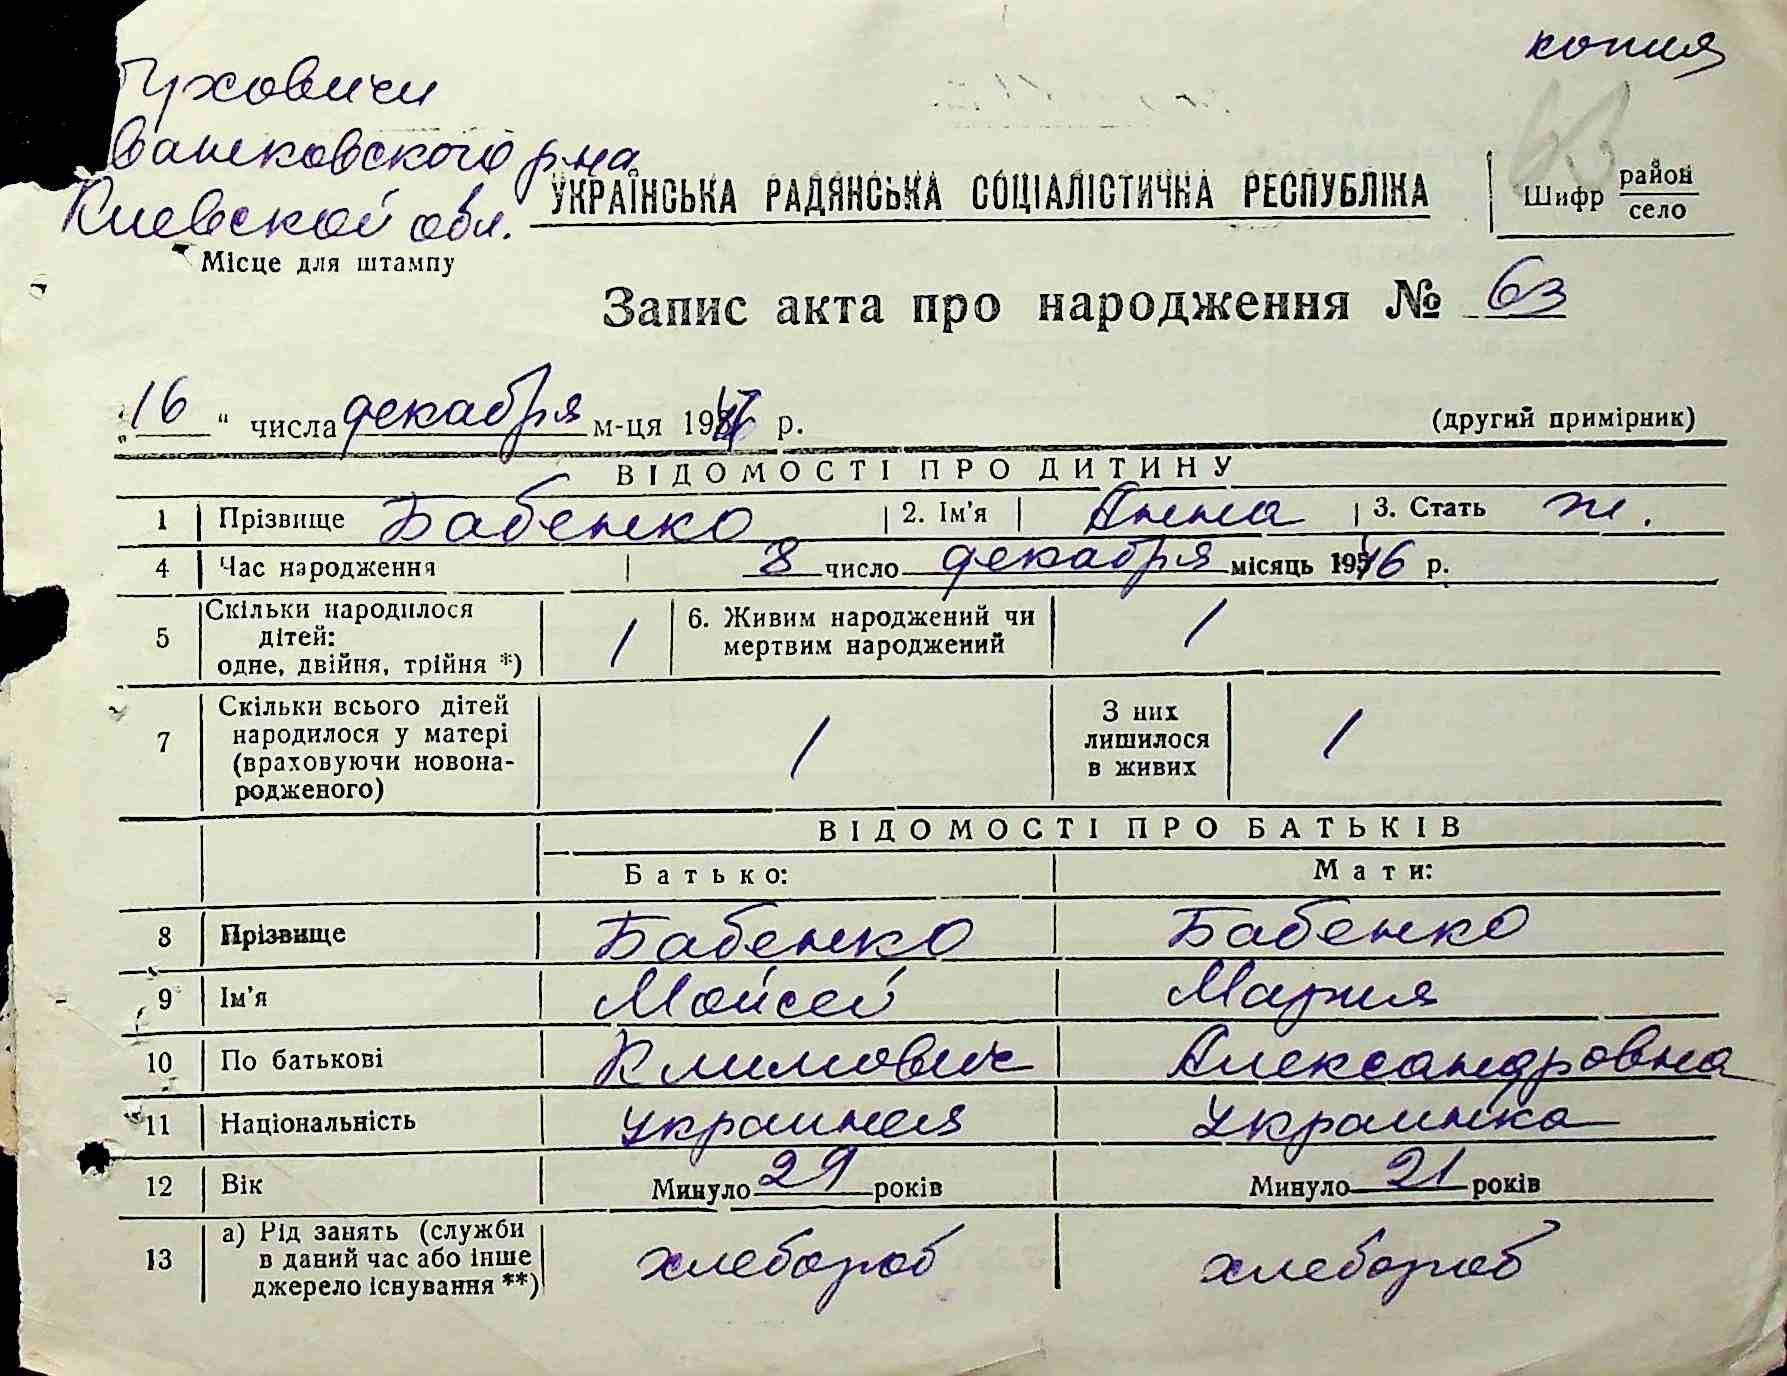 копия
Туховичи
Ивашковского р-на
Киевской обл.
УКРАЇНСЬКА РАДЯНСЬКА СОЦІАЛІСТИЧНА РЕСПУБЛІКА
Шифр район
село
63
Місце для штампу
Запис акта про народження № 63
„16“ числа декабря м-ця 1946 р. (другий примірник)
ВІДОМОСТІ ПРО ДИТИНУ
1 Прізвище Бабенко 2. Ім'я Анна 3. Стать ж.
4 Час народження 8 число декабря місяць 1946 р.
5 Скільки народилося дітей: одне, двійня, трійня *) 1 6. Живим народжений чи мертвим народжений 1
7 Скільки всього дітей народилося у матері (враховуючи новонародженого) 1 З них лишилося в живих 1
ВІДОМОСТІ ПРО БАТЬКІВ
Батько: Мати:
8 Прізвище Бабенко Бабенко
9 Ім'я Мойсей Мария
10 По батькові Климович Александровна
11 Національність украинец украинка
12 Вік Минуло 29 років Минуло 21 років
13 а) Рід занять (служби в даний час або інше джерело існування **) хлебороб хлебороб